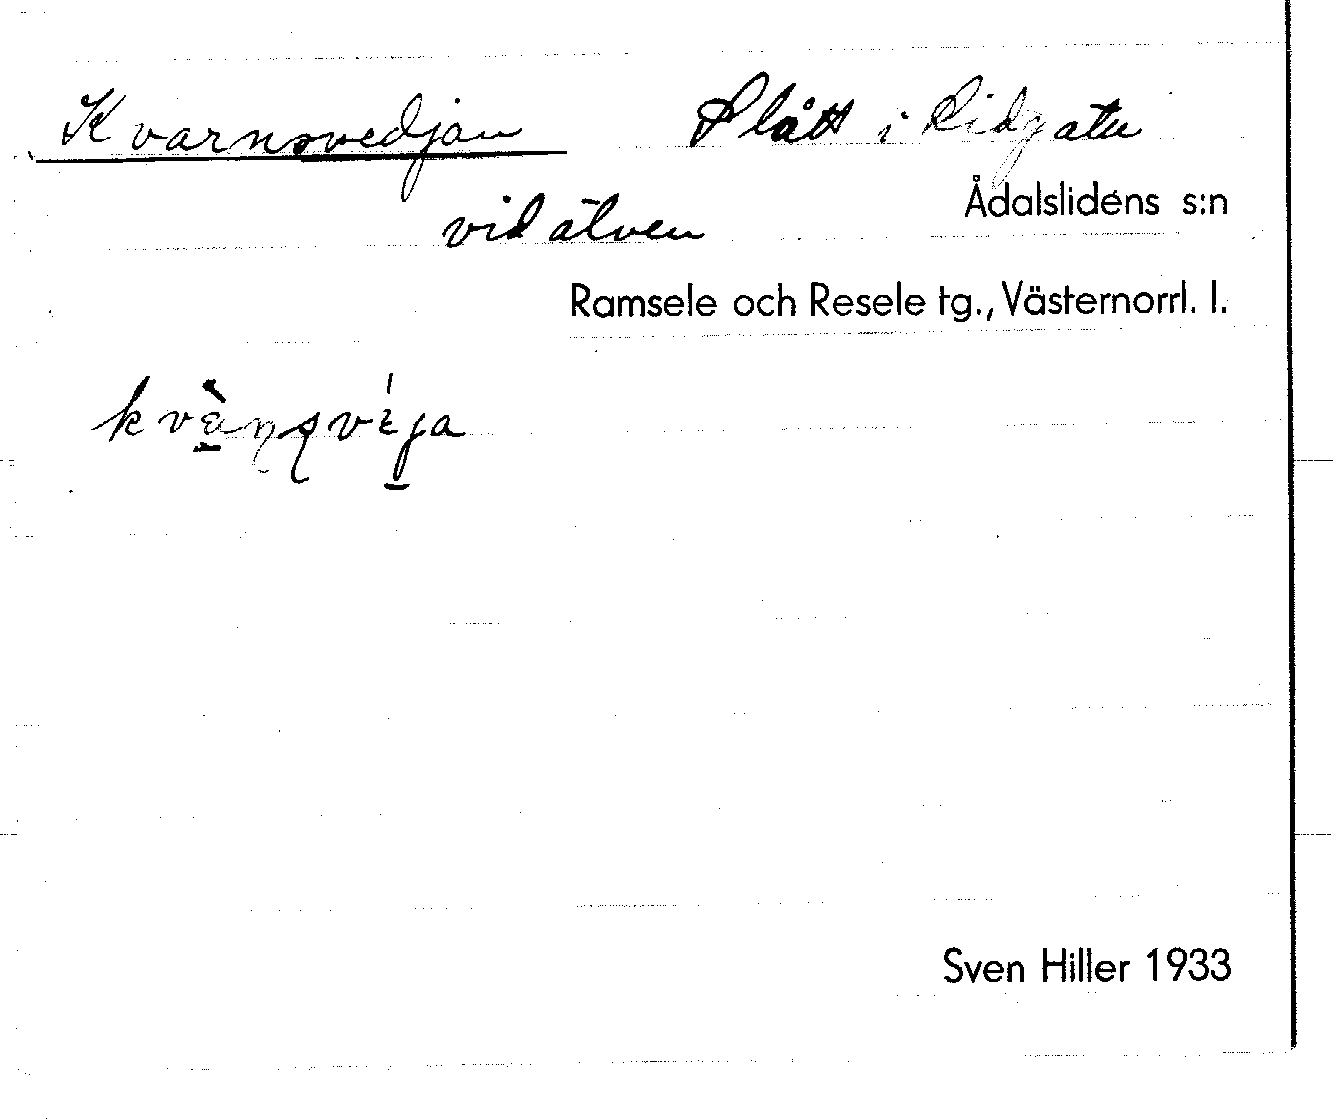 Kvarnsvedjan Slått i Lidgatu
Ådalslidens s:n
vid älven
Ramsele och Resele tg., Västernorrl. l.
Sven Hiller 1933